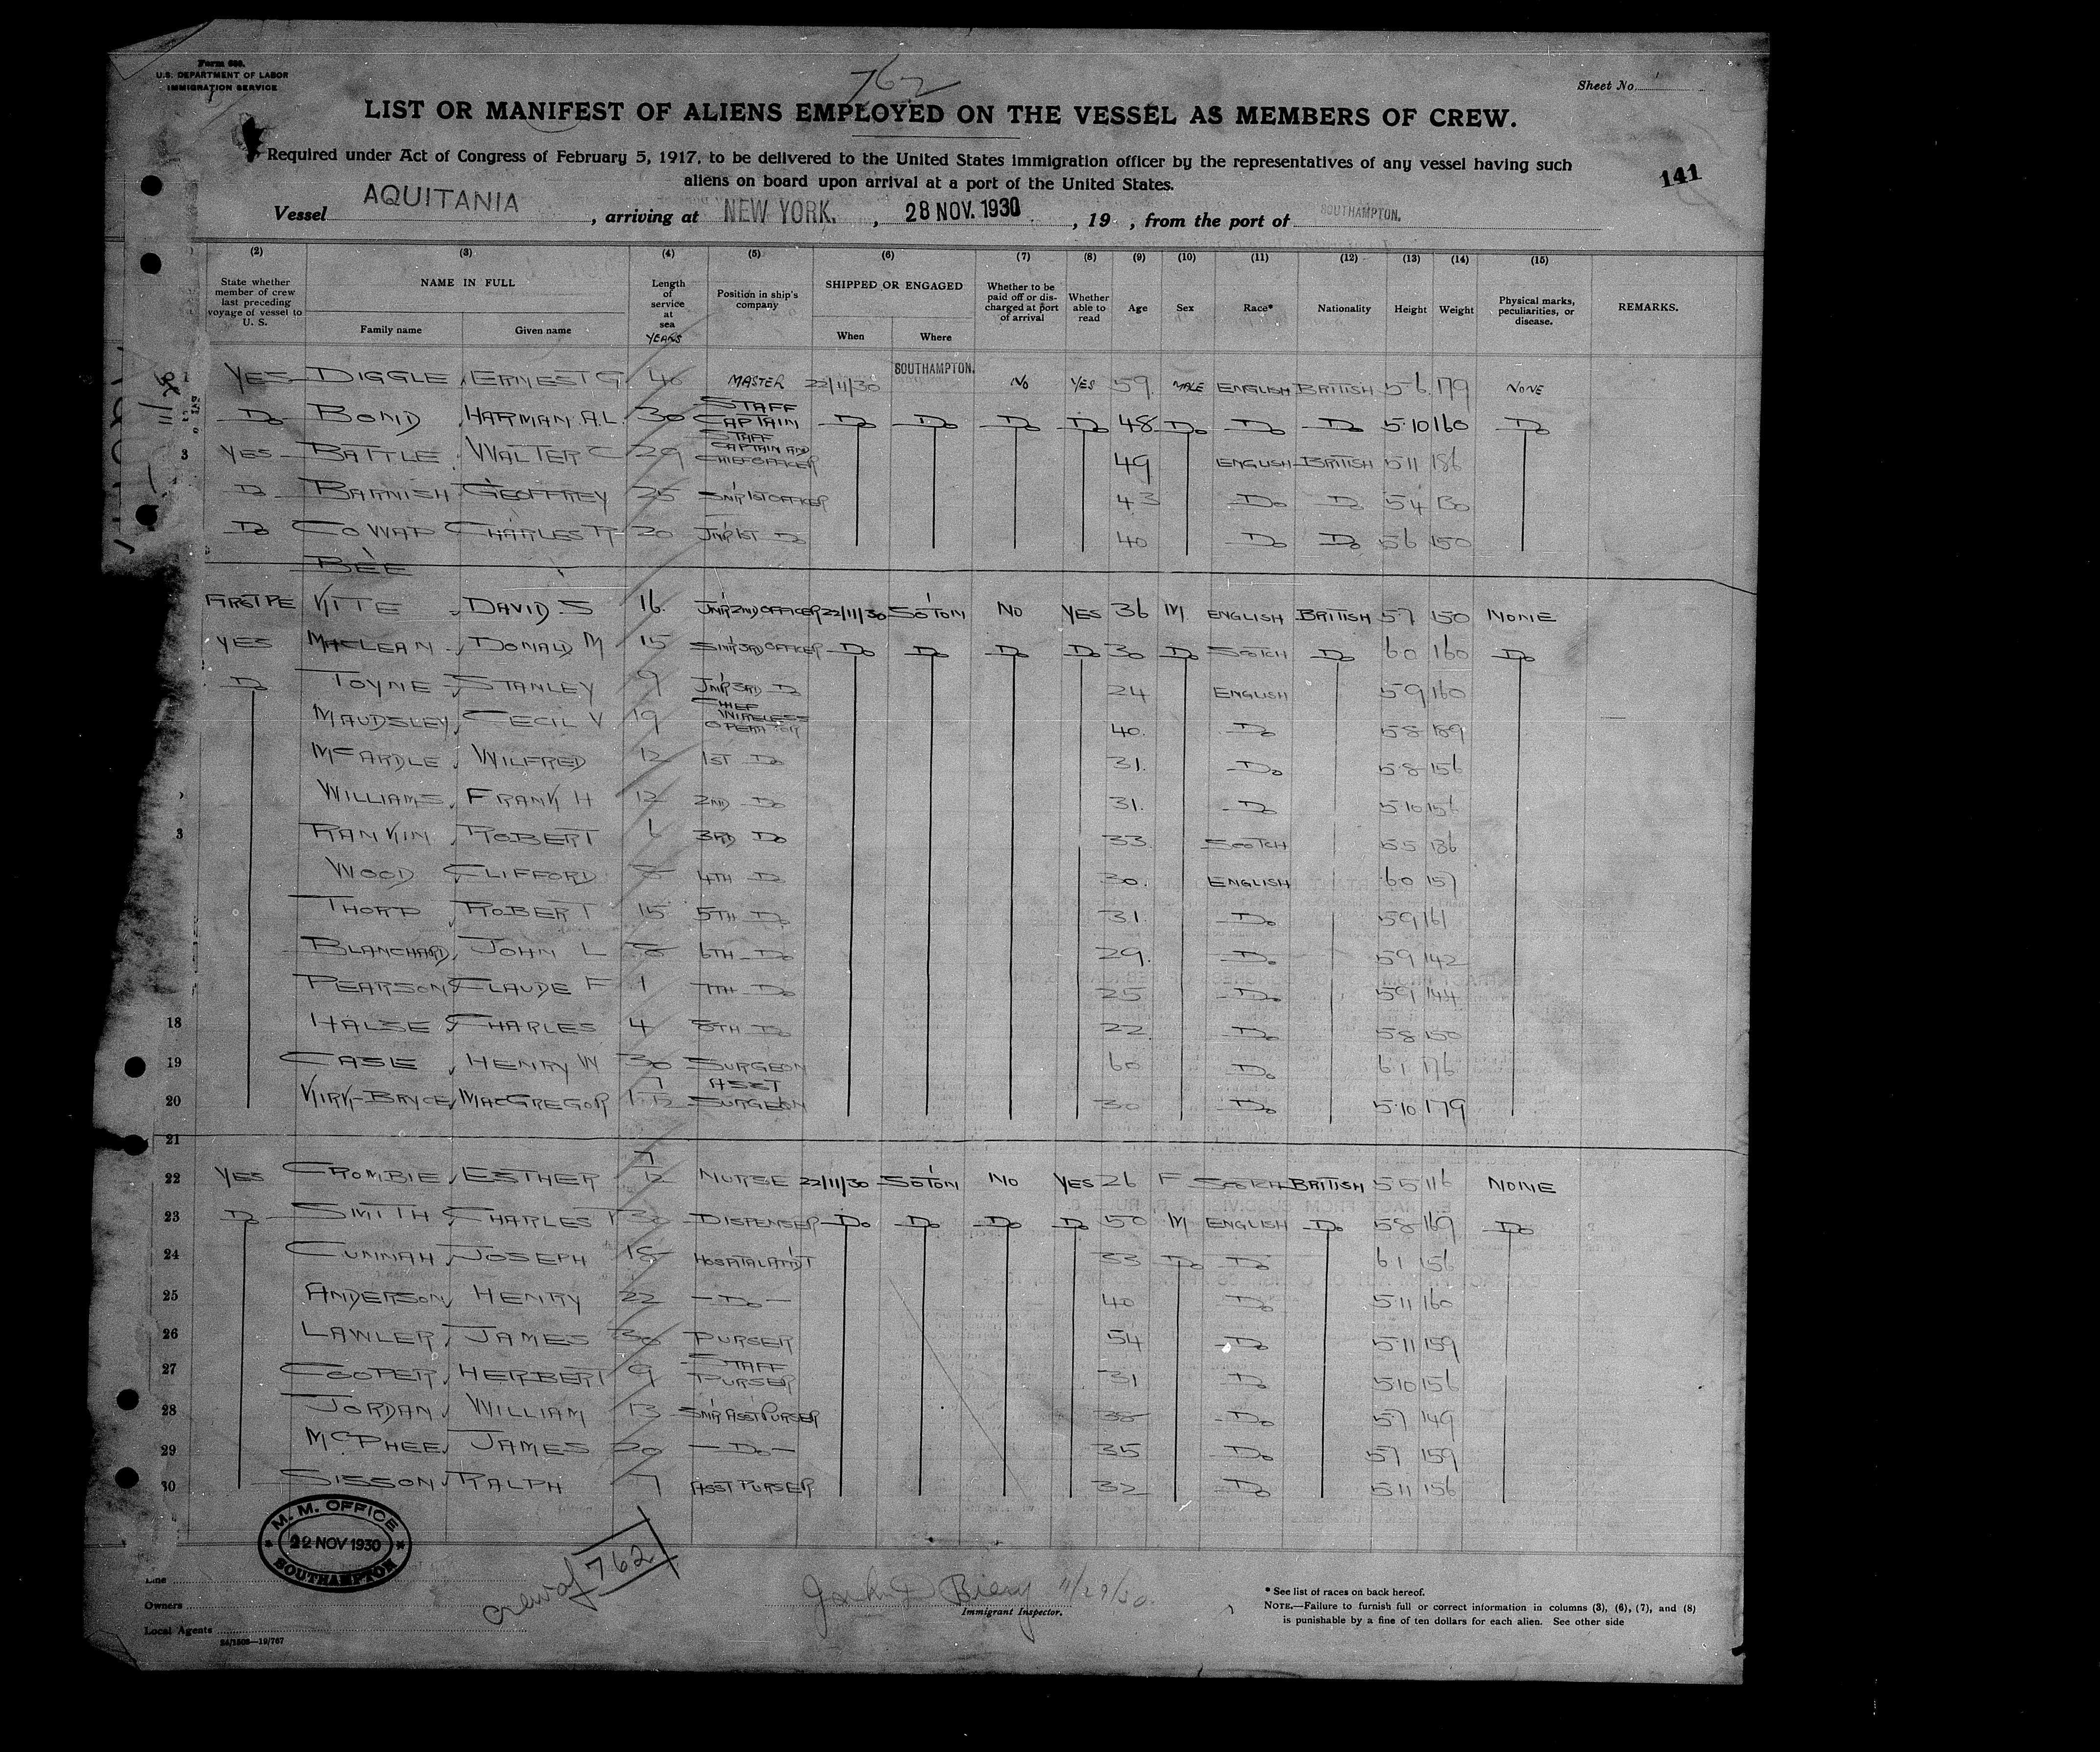 Form 680.
U.S. DEPARTMENT OF LABOR
IMMIGRATION SERVICE
762
Sheet No.
LIST OR MANIFEST OF ALIENS EMPLOYED ON THE VESSEL AS MEMBERS OF CREW.
Required under Act of Congress of February 5, 1917, to be delivered to the United States immigration officer by the representatives of any vessel having such
aliens on board upon arrival at a port of the United States.
141
Vessel AQUITANIA, arriving at NEW YORK., 28 NOV. 1930, 19 , from the port of SOUTHAMPTON.
(2) (3) (4) (5) (6) (7) (8) (9) (10) (11) (12) (13) (14) (15)
State whether member of crew last preceding voyage of vessel to U. S. NAME IN FULL Family name Given name Length of service at sea YEARS Position in ship's company SHIPPED OR ENGAGED When Where Whether to be paid off or discharged at port of arrival Whether able to read Age Sex Race* Nationality Height Weight Physical marks, peculiarities, or disease. REMARKS.
YES DIGGLE ERNEST G 40 MASTER 22/11/30 SOUTHAMPTON. NO YES 59 MALE ENGLISH BRITISH 5-6 179 NONE
Do BOND HARMAN A.L. 30 STAFF CAPTAIN Do Do Do Do 48 Do Do Do 5-10 160 Do
3 YES BATTLE WALTER C 29 STAFF CAPTAIN AND CHIEF OFFICER 49 ENGLISH BRITISH 5 11 186
Do BARNISH GEOFFREY 25 SNR 1ST OFFICER 43 Do Do 5 4 130
Do COWAP CHARLES R 20 JNR 1ST Do 40 Do Do 5 6 150
BEE
FIRST PE KITE DAVID S 16 JNR 2ND OFFICER 22/11/30 SO'TON NO YES 36 M ENGLISH BRITISH 5 7 150 NONE
YES MACLEAN DONALD M 15 SNR 3RD OFFICER Do Do Do Do 30 Do SCOTCH Do 6 0 160 Do
Do TOYNE STANLEY 9 JNR 3RD Do 24 ENGLISH 5 9 160
MAUDSLEY CECIL V 19 CHIEF WIRELESS OPERATOR 40 Do 5 8 189
McARDLE WILFRED 12 1ST Do 31 Do 5 8 156
WILLIAMS FRANK H 12 2ND Do 31 Do 5 10 156
3 RANKIN ROBERT 6 3RD Do 33 SCOTCH 5 5 136
WOOD CLIFFORD 8 4TH Do 30 ENGLISH 6 0 157
THORP ROBERT 15 5TH Do 31 Do 5 9 161
BLANCHARD JOHN L 8 6TH Do 29 Do 5 9 142
PEARSON CLAUDE F 1 7TH Do 25 Do 5 9 144
18 HALSE CHARLES 4 8TH Do 22 Do 5 8 150
19 CASLE HENRY W 30 SURGEON 60 Do 6 1 176
20 KIRK-BRYCE MACGREGOR ASST SURGEON 30 Do 5 10 179
21
22 YES CROMBIE ESTHER 7/12 NURSE 22/11/30 SO'TON NO YES 26 F SCOTCH BRITISH 5 5 116 NONE
23 Do SMITH CHARLES 30 DISPENSER Do Do Do Do 50 M ENGLISH Do 5 8 169 Do
24 CUNNAH JOSEPH 18 HOSPITAL ATT'D'T 33 Do Do 6 1 156
25 ANDERSON HENRY 22 - Do - 40 Do 5 11 160
26 LAWLER JAMES 30 PURSER 54 Do 5 11 159
27 COOPER HERBERT 9 STAFF PURSER 31 Do 5 10 156
28 JORDAN WILLIAM 13 SNR ASST PURSER 38 Do 5 7 149
29 McPHEE JAMES 20 - Do - 35 Do 5 7 159
30 SISSON RALPH 7 ASST PURSER 32 Do 5 11 156
M. M. OFFICE
22 NOV 1930
SOUTHAMPTON
Line
Owners
Local Agents
crew of 762
John D Bieny 11/29/30.
Immigrant Inspector.
* See list of races on back hereof.
NOTE.—Failure to furnish full or correct information in columns (3), (6), (7), and (8)
is punishable by a fine of ten dollars for each alien. See other side